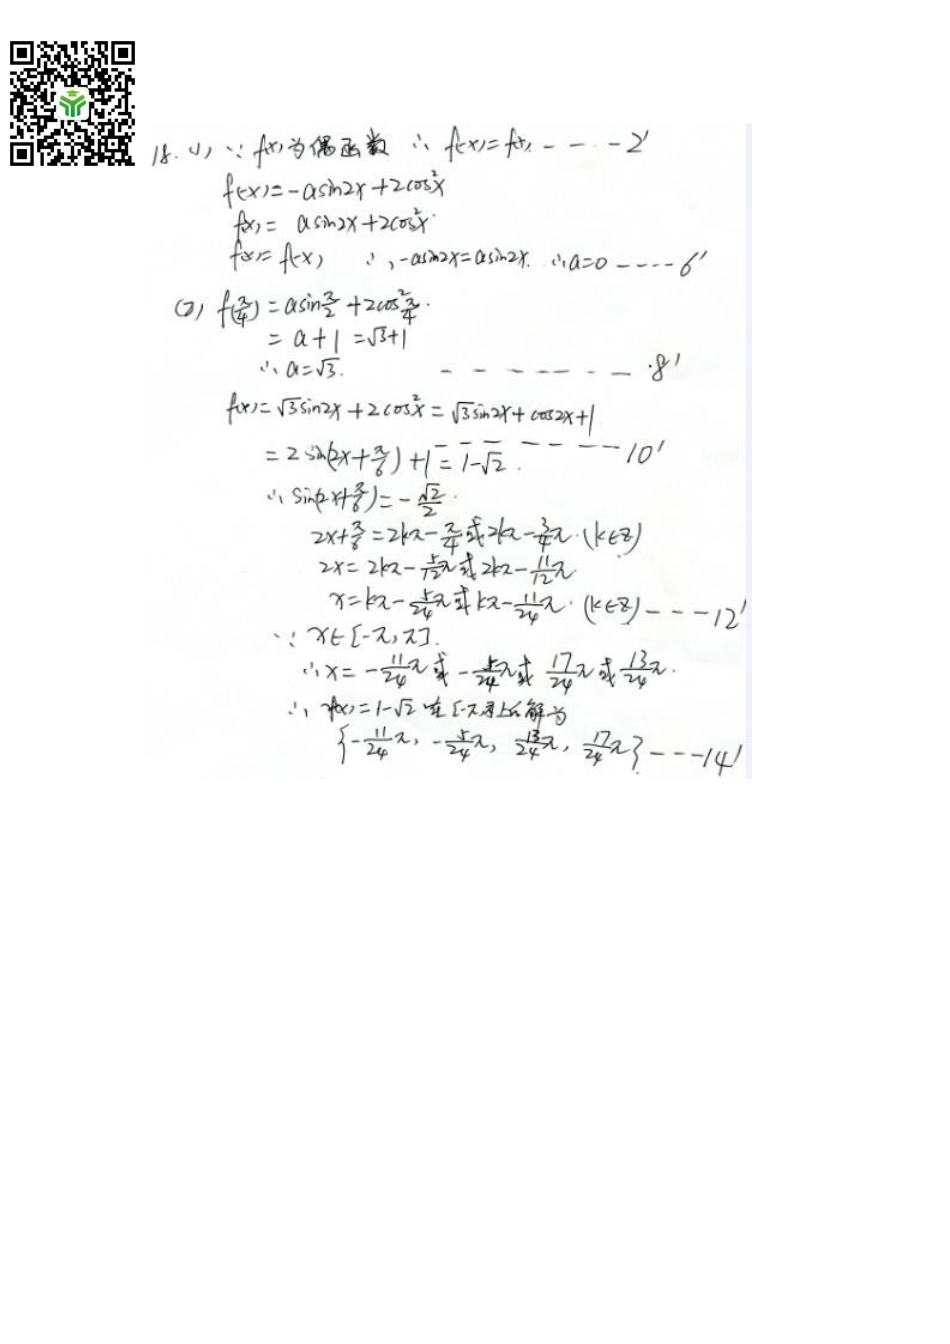 18. (1) ∵ f(x)为偶函数 ∴ f(-x)=f(x) - - - -2'
f(-x)=-asin2x+2cos²x
f(x)= asin2x+2cos²x
f(x)=f(-x) ∴ -asin2x=asin2x. ∴a=0 - - - - 6'
(2) f(π/4)=asin π/2 +2cos² π/4.
= a+1 =√3+1
∴ a=√3. - - - - - - - 8'
f(x)=√3sin2x+2cos²x=√3sin2x+cos2x+1
=2sin(2x+π/6)+1=1-√2. - - - - - - - 10'
∴ sin(2x+π/6)=-√2/2.
2x+π/6=2kπ-π/4或2kπ-3/4π.(k∈Z)
2x=2kπ-5/12π或2kπ-11/12π
x=kπ-5/24π或kπ-11/24π.(k∈Z) - - - 12'
∵ x∈[-π,π].
∴x=-11/24π或-5/24π或17/24π或13/24π.
∴ f(x)=1-√2在[-π,π]上的解为
{-11/24π, -5/24π, 13/24π, 17/24π} - - - 14'